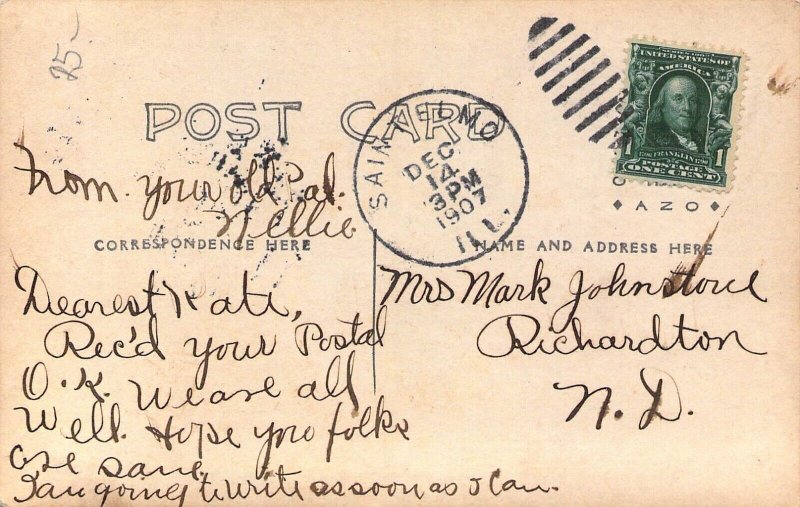 25-
SERIES 1902
UNITED STATES OF
AMERICA
1 1
1706 FRANKLIN 1790
POSTAGE
ONE CENT
POST CARD
SAINT ELMO
DEC
14
3 PM
1907
ILL.
AZO
From your old Pal.
Nellie
CORRESPONDENCE HERE
NAME AND ADDRESS HERE
Dearest Kate,
Rec'd your Postal
O.K. We are all
Well. Hope you folks
are same.
I am going to write as soon as I can.
Mrs Mark Johnstone
Richardton
N. D.